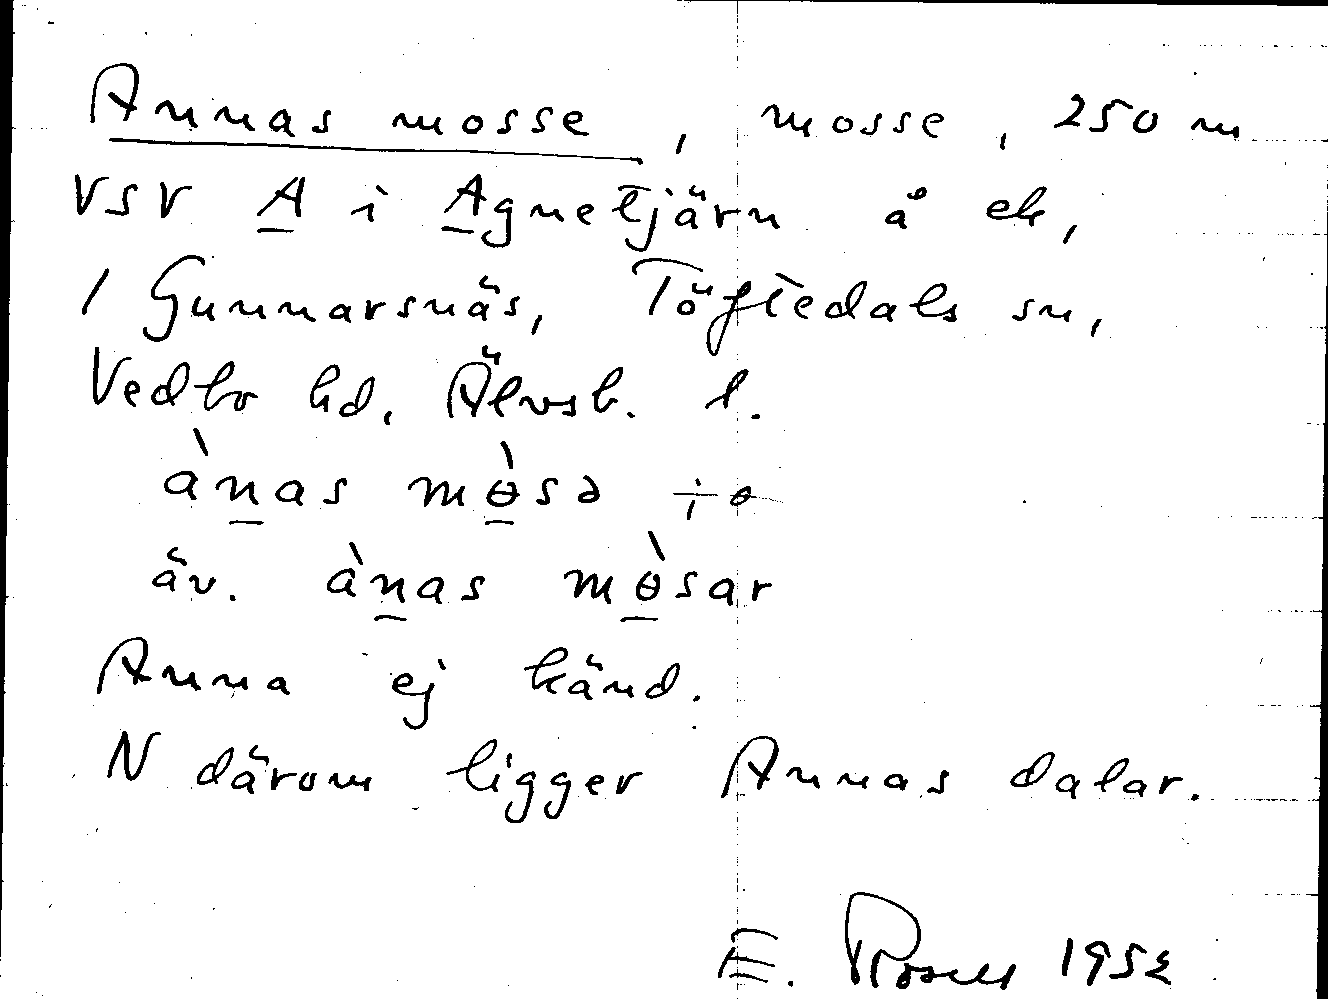 Annas mosse, mosse, 250 m
VSV A i Agnetjärn å ek,
/ Gunnarsnäs, Töftedals sn,
Vedbo hd, Älvsb. l.
ànas mɵ̀sə ÷
äv. ànas mɵ̀sar
Anna ej känd.
N därom ligger Annas dalar.
E. 195